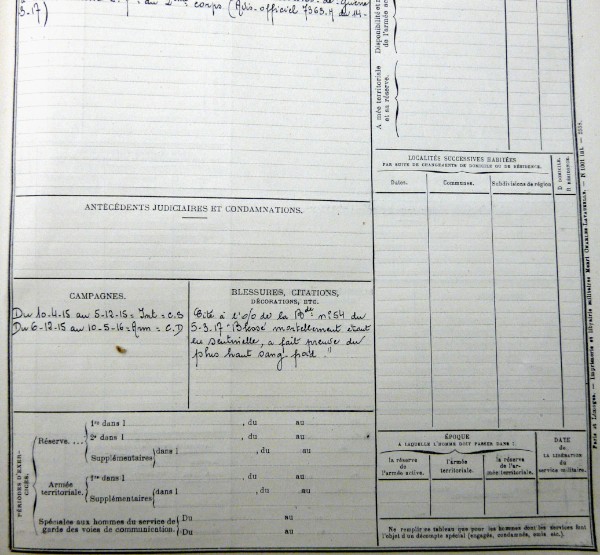 du 2ème corps (Avis officiel 7363.M du 14-
3-17)
Disponibilité et
de l'armée
A mée territoriale
et sa réserve.
LOCALITÉS SUCCESSIVES HABITÉES
PAR SUITE DE CHANGEMENTS DE DOMICILE OU DE RÉSIDENCE.
Dates.
Communes.
Subdivisions de région
D. DOMICILE.
R. RÉSIDENCE.
ANTÉCÉDENTS JUDICIAIRES ET CONDAMNATIONS.
CAMPAGNES.
Du 10-4-15 au 5-12-15 = Int = C.S
Du 6-12-15 au 10-5-16 = Arm = C.D
BLESSURES, CITATIONS,
DÉCORATIONS, ETC.
Cité à l'o/e de la Bde n° 54 du
5-3-17 "Blessé mortellement étant
en sentinelle, a fait preuve du
plus haut sang froid "
PÉRIODES D'EXER-
CICES.
Réserve. ...
1re dans l , du au
2e dans l , du au
Supplémentaires dans l , du au
Armée
territoriale.
1re dans l , du au
Supplémentaires dans l , du au
Spéciales aux hommes du service de
garde des voies de communication.
Du au
Du au
ÉPOQUE
A LAQUELLE L'HOMME DOIT PASSER DANS :
la réserve
de
l'armée active.
l'armée
territoriale.
la réserve
de l'ar-
mée territoriale.
DATE
de
LA LIBÉRATION
du
service militaire.
Ne remplir ce tableau que pour les hommes dont les services font
l'objet d'un décompte spécial (engagés, condamnés, omis etc.)
Paris et Limoges. — Imprimerie et librairie militaires Henri CHARLES-LAVAUZELLE. —